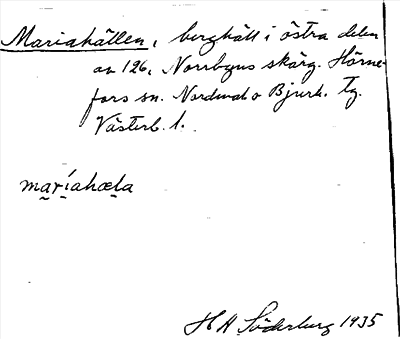 Mariahällen, berghäll i östra delen
av 126, Norrbyns skärg. Hörne-
fors sn. Nordmal o Bjurh. tg.
Västerb. l.
maríahæla
H A Söderberg 1935